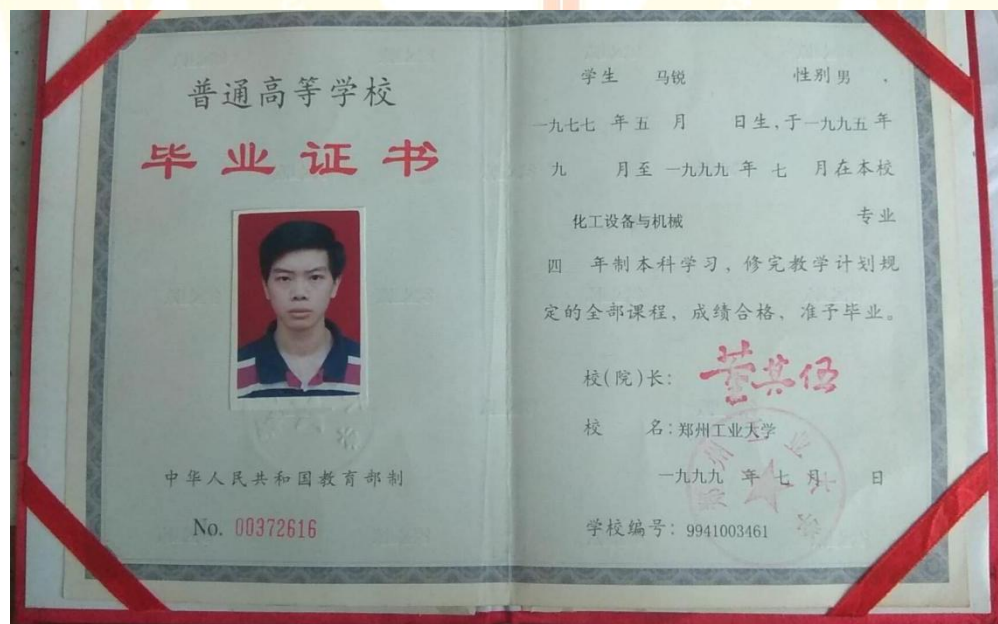 普通高等学校
毕业证书
中华人民共和国教育部制
No. 00372616
学生 马锐 性别 男 ，
一九七七 年 五 月 日生，于 一九九五 年
九 月至 一九九九 年 七 月在本校
化工设备与机械 专业
四 年制本科学习，修完教学计划规
定的全部课程，成绩合格、准予毕业。
校（院）长： 董其伍
校 名：郑州工业大学
一九九九 年 七 月 日
学校编号：9941003461